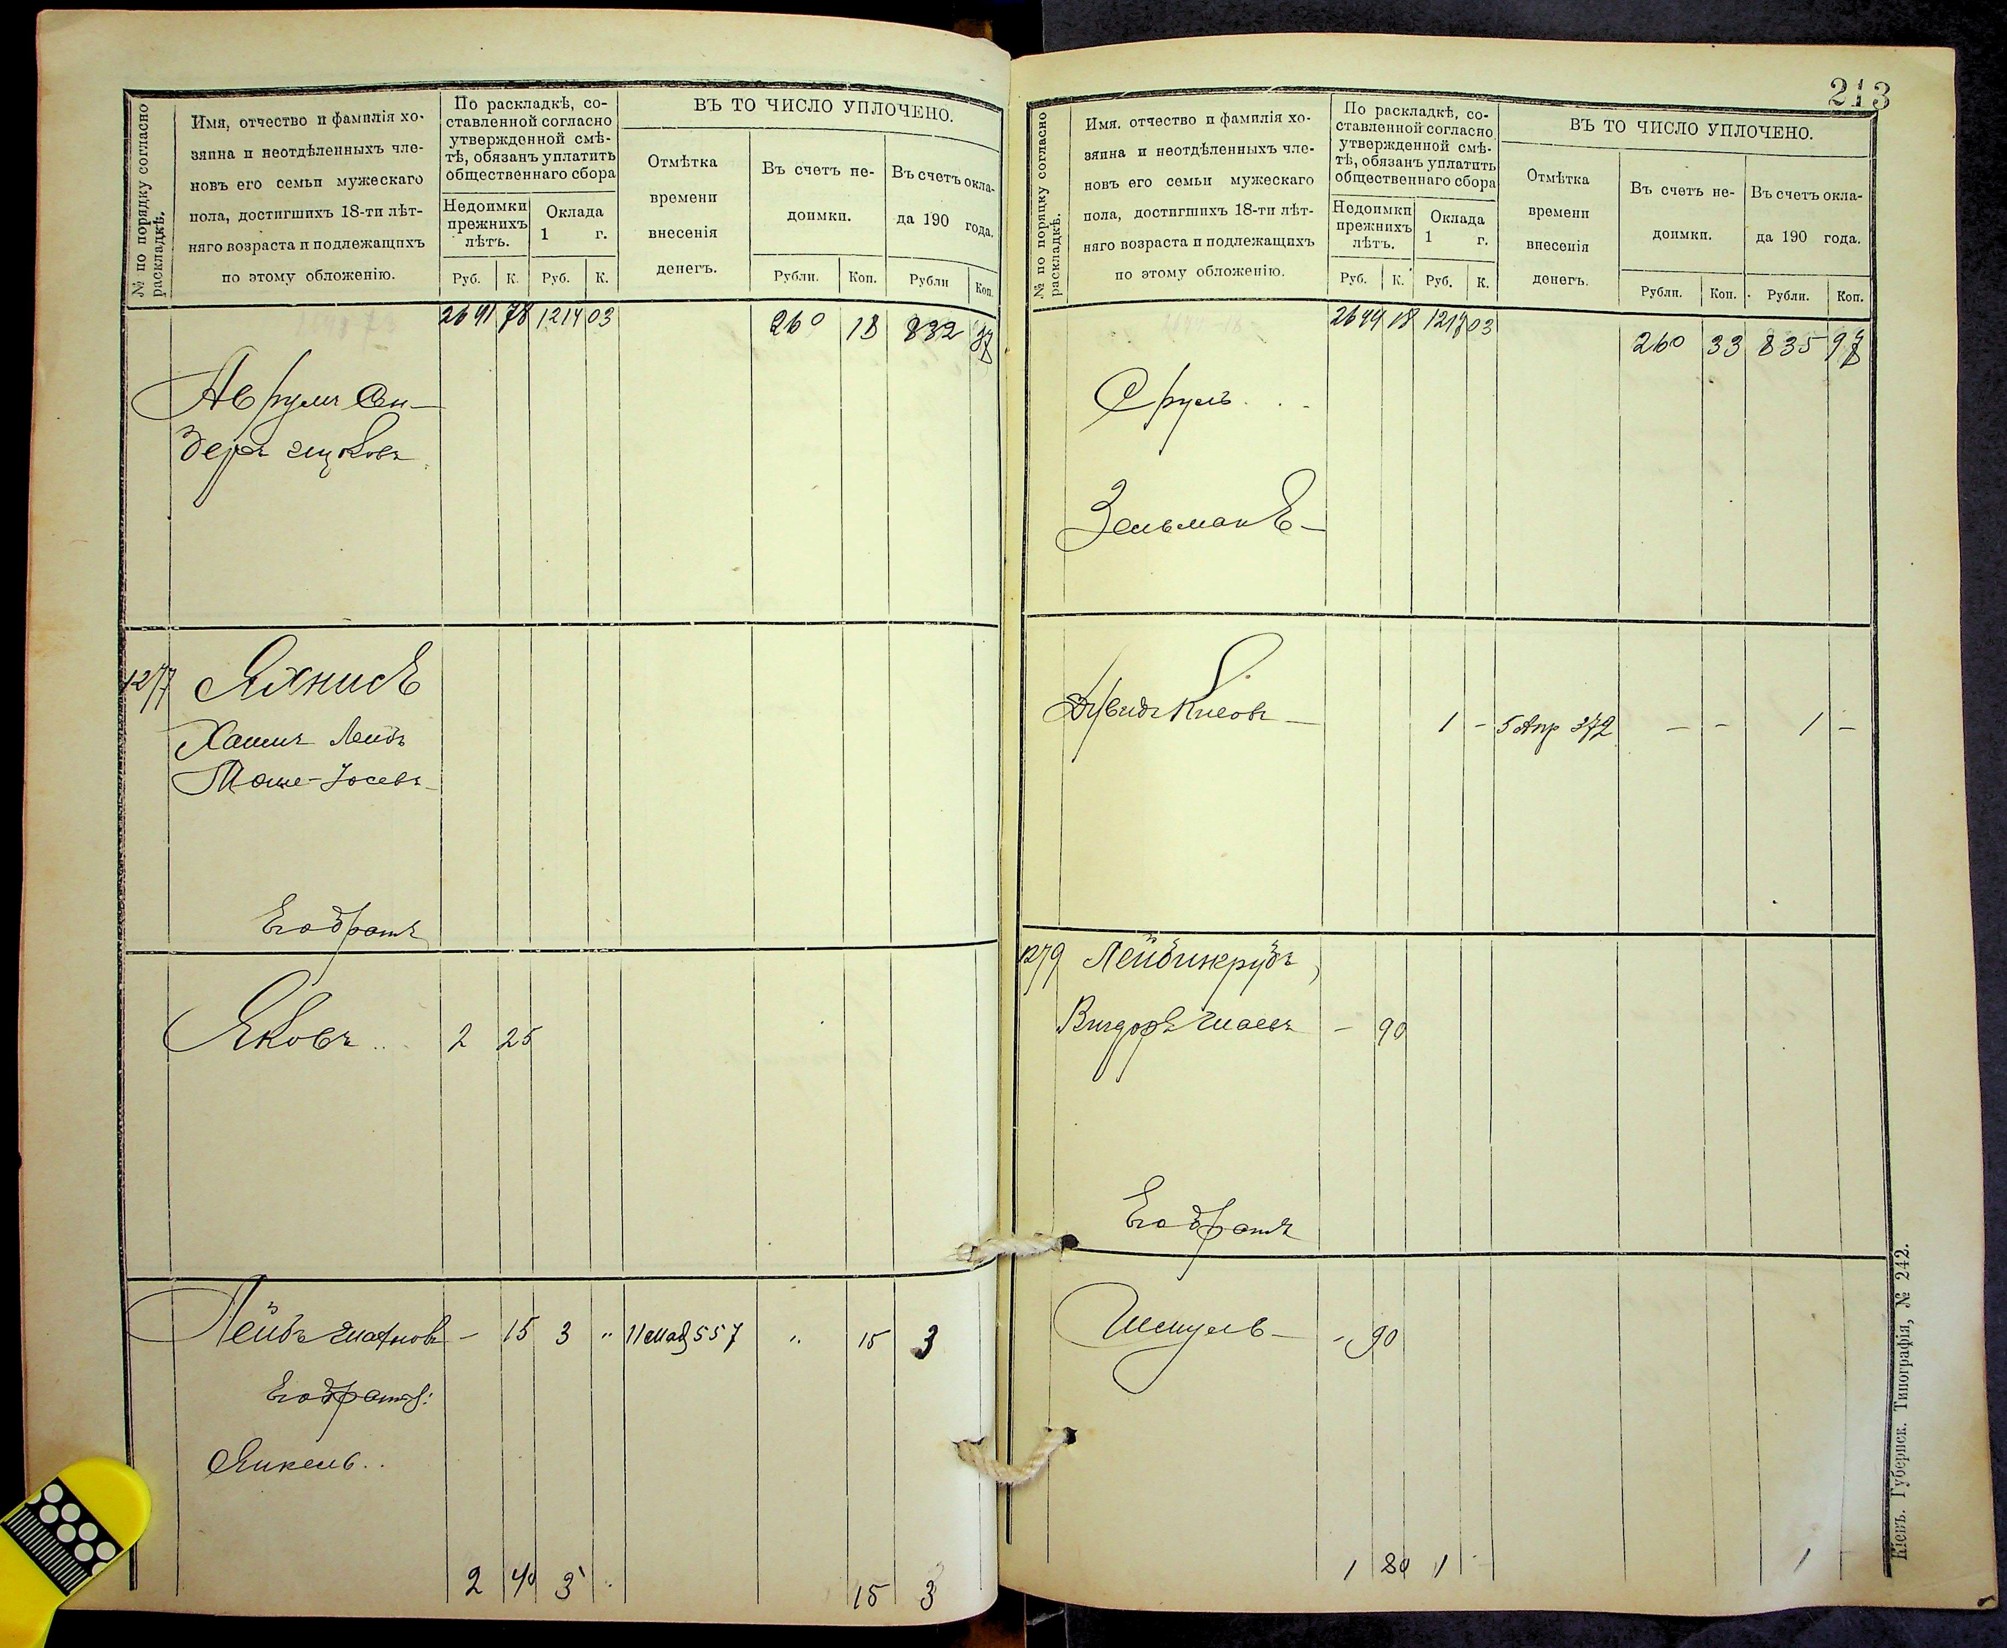 № по порядку согласно раскладкѣ.
Имя, отчество и фамилія хо-
зяина и неотдѣленныхъ чле-
новъ его семьи мужескаго
пола, достигшихъ 18-ти лѣт-
няго возраста и подлежащихъ
по этому обложенію.
По раскладкѣ, со-
ставленной согласно
утвержденной смѣ-
тѣ, обязанъ уплатить
общественнаго сбора
Недоимки
прежнихъ
лѣтъ.
Оклада
1 г.
Руб. К. Руб. К.
ВЪ ТО ЧИСЛО УПЛОЧЕНО.
Отмѣтка
времени
внесенія
денегъ.
Въ счетъ не-
доимки.
Рубли. Коп.
Въ счетъ окла-
да 190 года.
Рубли Коп.
2641 78 1214 03 260 18 832
Аврумъ Сен-
деръ Ицковъ
1277 Яхнисъ
Хаимъ Лейбъ
Моше-Іосевъ
Его братъ
Яковъ 2 25
Лейбъ - 15 3 " 11 557 " 15 3
Его братъ:
Янкель..
2 40 3 15 3
213
№ по порядку согласно раскладкѣ.
Имя. отчество и фамилія хо-
зяина и неотдѣленныхъ чле-
новъ его семьи мужескаго
пола, достигшихъ 18-ти лѣт-
няго возраста и подлежащихъ
по этому обложенію.
По раскладкѣ, со-
ставленной согласно
утвержденной смѣ-
тѣ, обязанъ уплатить
общественнаго сбора
Недоимки
прежнихъ
лѣтъ.
Оклада
1 г.
Руб. К. Руб. К.
ВЪ ТО ЧИСЛО УПЛОЧЕНО.
Отмѣтка
времени
внесенія
денегъ.
Въ счетъ не-
доимки.
Рубли. Коп.
Въ счетъ окла-
да 190 года.
Рубли. Коп.
2644 18 1217 03 260 33 835
Сруль
Зельманъ
1 - 5 Апр 372 - - 1 -
1279 Лейбинкрубъ
Вигдоръ - 90
Его братъ
Шмуль - 90
1 80 1 - 1
Кіевъ. Губернск. Типографія, № 242.